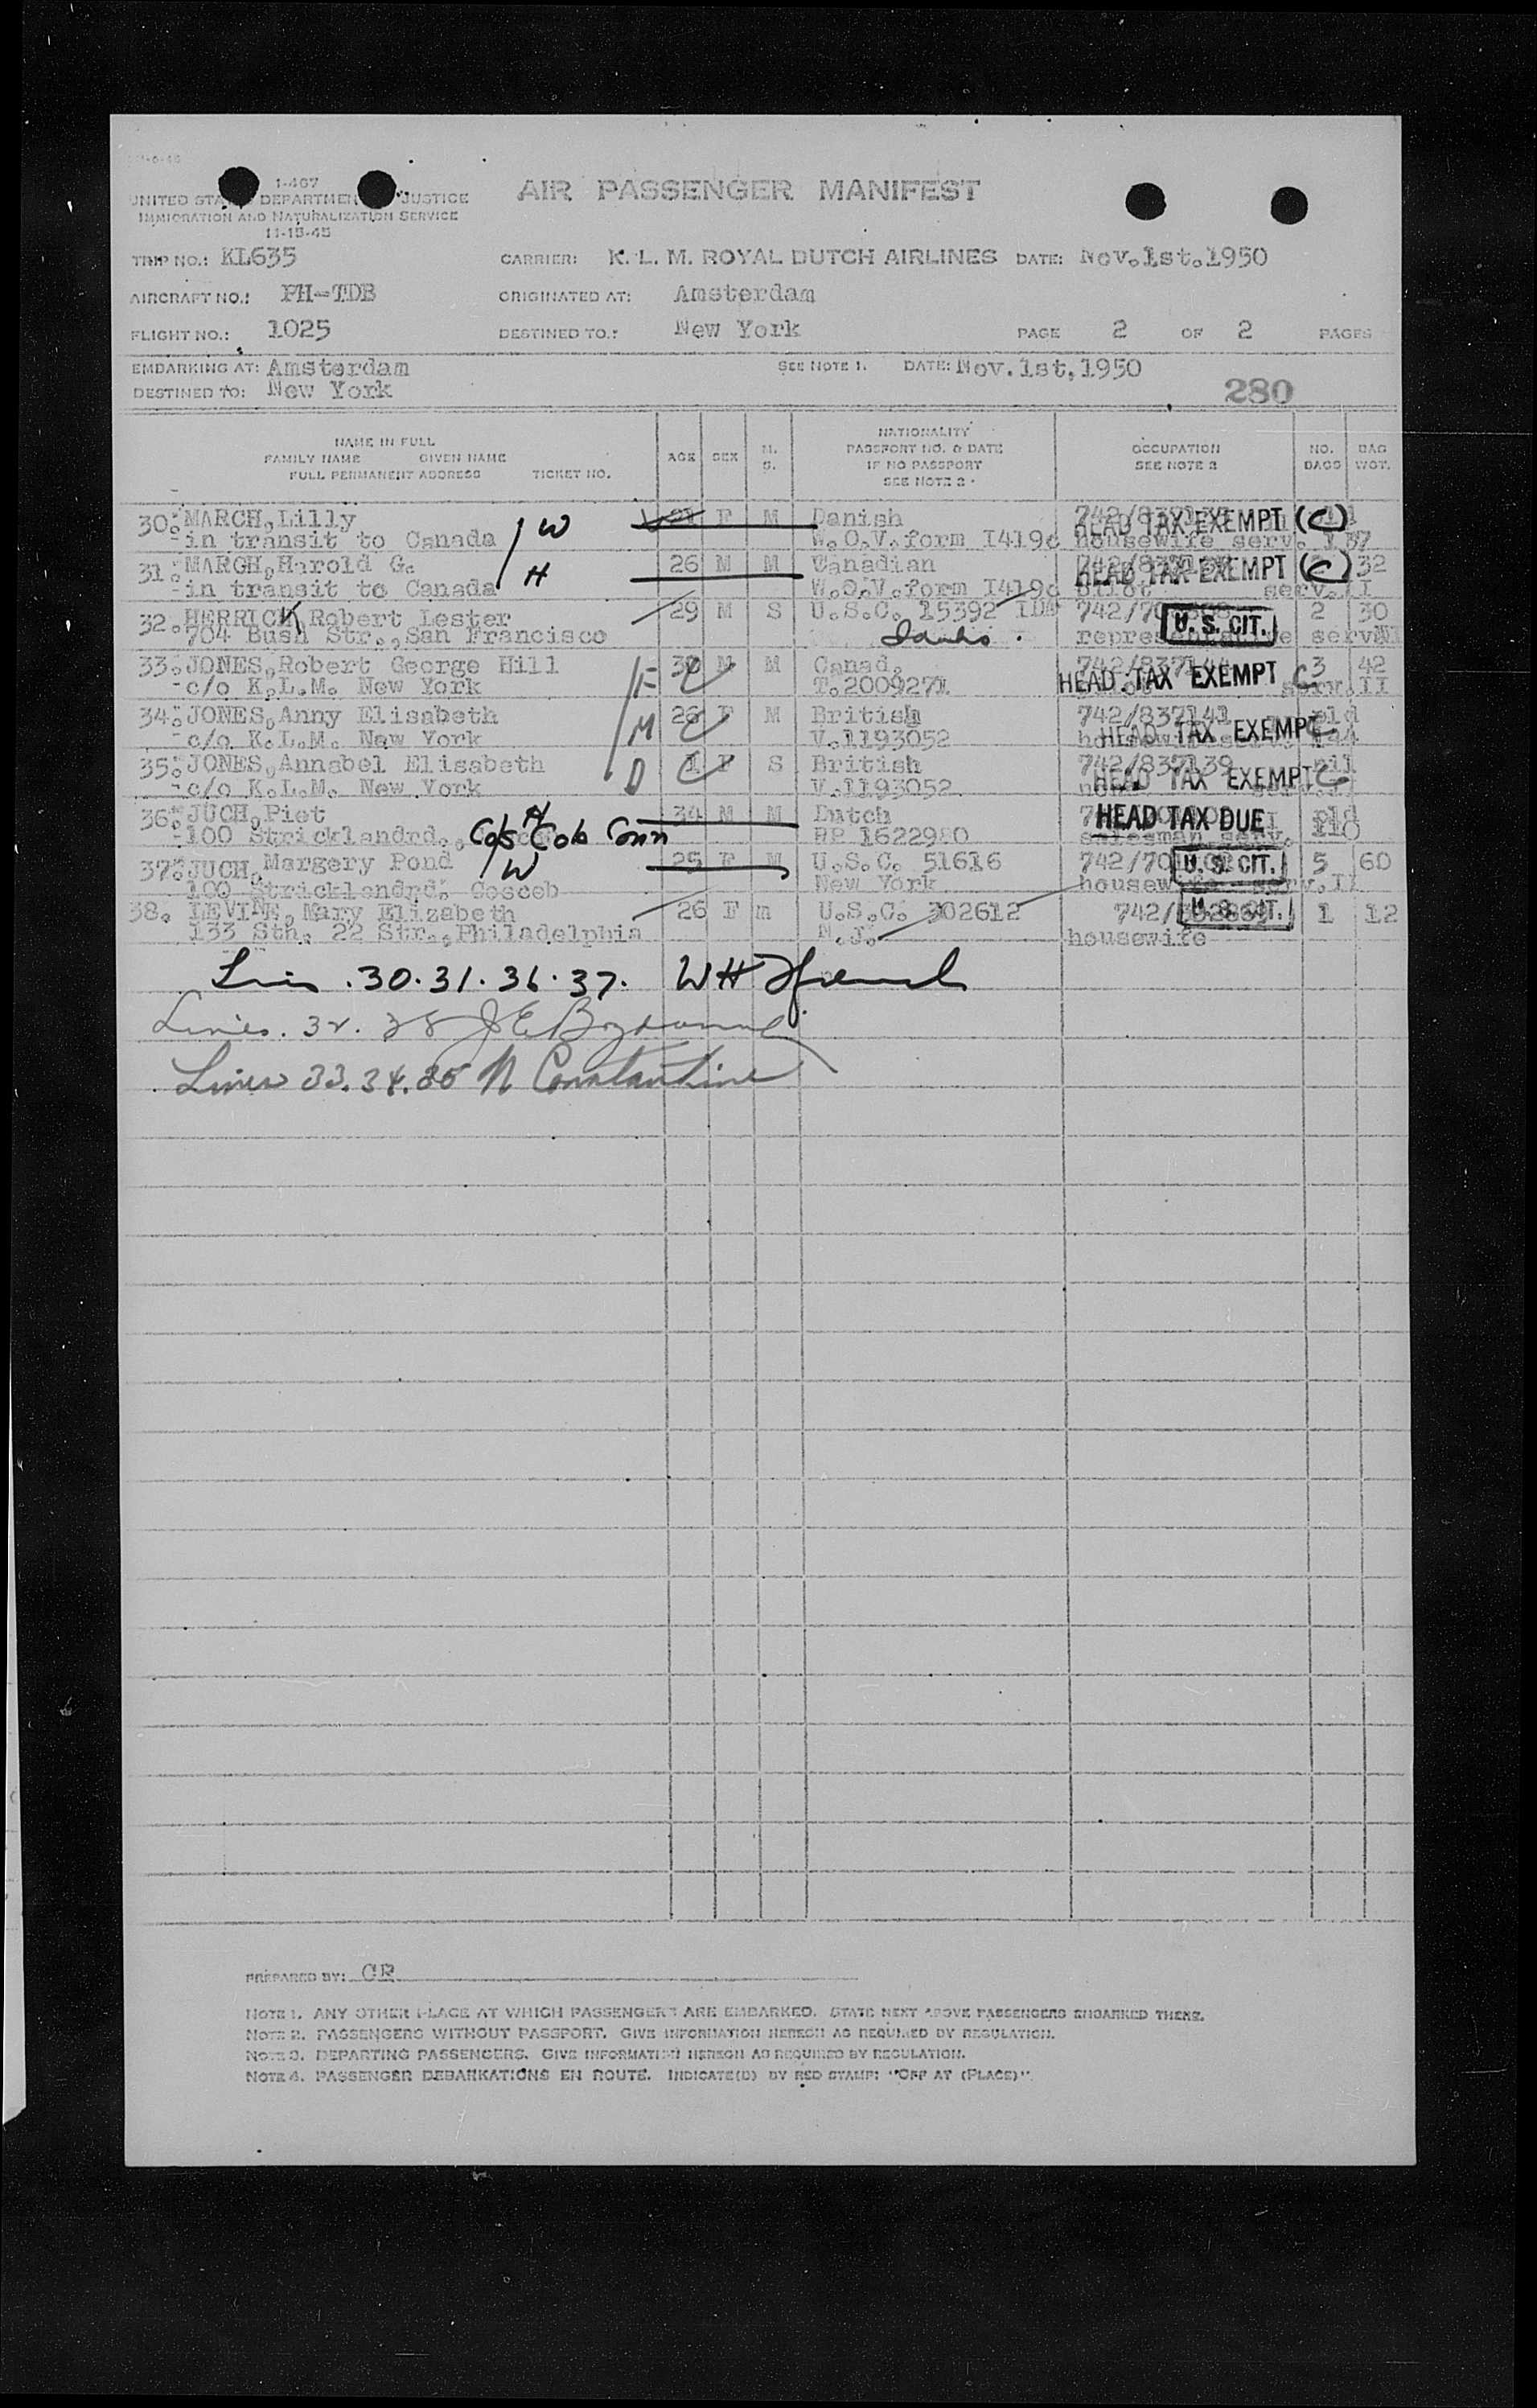 1-467
UNITED STATES DEPARTMENT JUSTICE
IMMIGRATION AND NATURALIZATION SERVICE
11-15-45
AIR PASSENGER MANIFEST
TRIP NO.: KL635 CARRIER: K. L. M. ROYAL DUTCH AIRLINES DATE: Nov.1st.1950
AIRCRAFT NO.: PH-TDB ORIGINATED AT: Amsterdam
FLIGHT NO.: 1025 DESTINED TO.: New York PAGE 2 OF 2 PAGES
EMBARKING AT: Amsterdam SEE NOTE 1. DATE: Nov.1st,1950
DESTINED TO: New York 280
NAME IN FULL
FAMILY NAME GIVEN NAME
FULL PERMANENT ADDRESS TICKET NO.
AGE SEX M. S.
NATIONALITY
PASSPORT NO. & DATE
IF NO PASSPORT
SEE NOTE 2
OCCUPATION
SEE NOTE 3
NO. BAGS BAG WGT.
30. MARCH, Lilly W F M Danish HEAD TAX EXEMPT (C)
in transit to Canada W.O.V. form I419c housewife serv.
31. MARCH, Harold G. H 26 M M Canadian HEAD TAX EXEMPT (C) 32
in transit to Canada W.O.V. form I419c pilot serv.II
32. HERRICK, Robert Lester 29 M S U.S.C. 15392 742/70 U. S. CIT. 2 30
704 Bush Str., San Francisco
33. JONES, Robert George Hill F M M Canad. 742/837144 3 42
c/o K.L.M. New York T.2009271 HEAD TAX EXEMPT C serv.II
34. JONES, Anny Elisabeth M 26 F M British 742/837141 pld
c/o K.L.M. New York V.1193052 HEAD TAX EXEMPT C
35. JONES, Annabel Elisabeth D 1 F S British 742/837139 nil
c/o K.L.M. New York V.1193052 HEAD TAX EXEMPT C
36. JUCH, Piet H 34 M M Dutch HEAD TAX DUE pld
100 Stricklandrd., Cos Cob Conn 1622980 salesman serv. 110
37. JUCH, Margery Pond W 25 F M U.S.C. 51616 742/70 U. S. CIT. 5 60
100 Stricklandrd. Coscob New York housewife serv.II
38. LEVINE, Mary Elizabeth 26 F m U.S.C. 302612 742/ U. S. CIT. 1 12
133 Sth. 22 Str., Philadelphia N.J. housewife
30.31.36.37. WH French
Lines. 32. 38 JE
Lines 33.34.35 N Constantine
PREPARED BY: CR
NOTE 1. ANY OTHER PLACE AT WHICH PASSENGERS ARE EMBARKED. STATE NEXT ABOVE PASSENGERS EMBARKED THERE.
NOTE 2. PASSENGERS WITHOUT PASSPORT. GIVE INFORMATION HEREON AS REQUIRED BY REGULATION.
NOTE 3. DEPARTING PASSENGERS. GIVE INFORMATION HEREON AS REQUIRED BY REGULATION.
NOTE 4. PASSENGER DEBARKATIONS EN ROUTE. INDICATE(D) BY RED STAMP: "OFF AT (PLACE)".